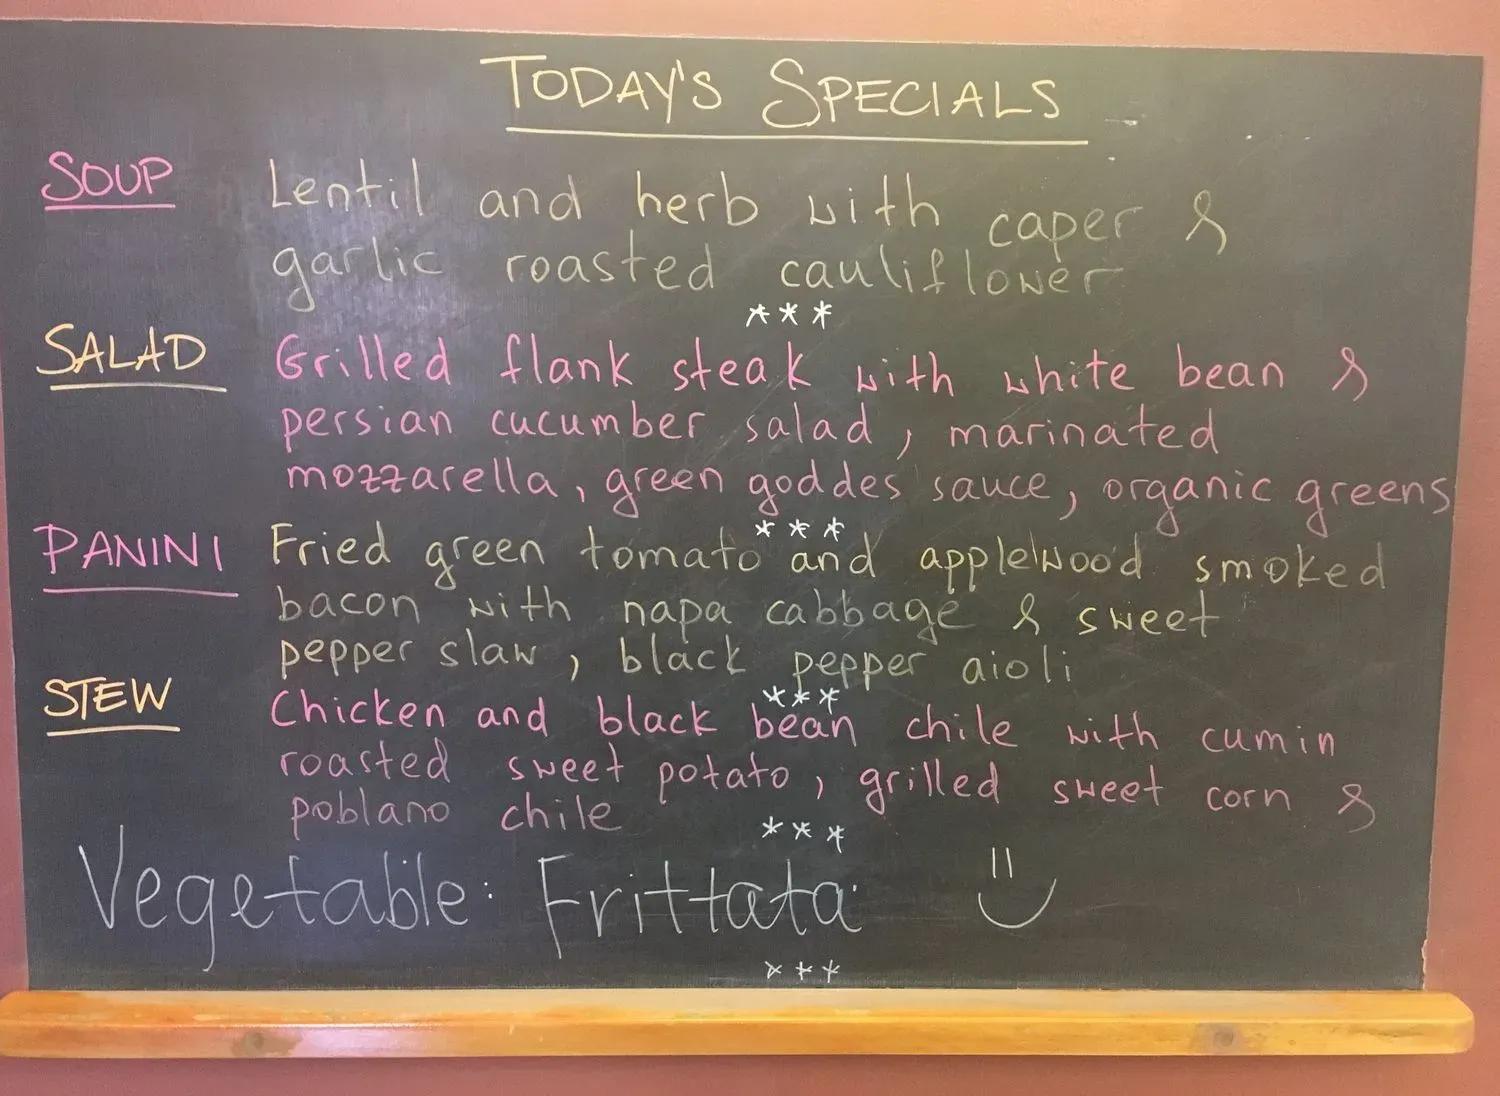 TODAY'S SPECIALS
SOUP Lentil and herb with caper &
garlic roasted cauliflower
***
SALAD Grilled flank steak with white bean &
persian cucumber salad, marinated
mozzarella, green goddes sauce, organic greens
***
PANINI Fried green tomato and applewood smoked
bacon with napa cabbage & sweet
pepper slaw, black pepper aioli
***
STEW Chicken and black bean chile with cumin
roasted sweet potato, grilled sweet corn &
poblano chile
***
Vegetable: Frittata
***